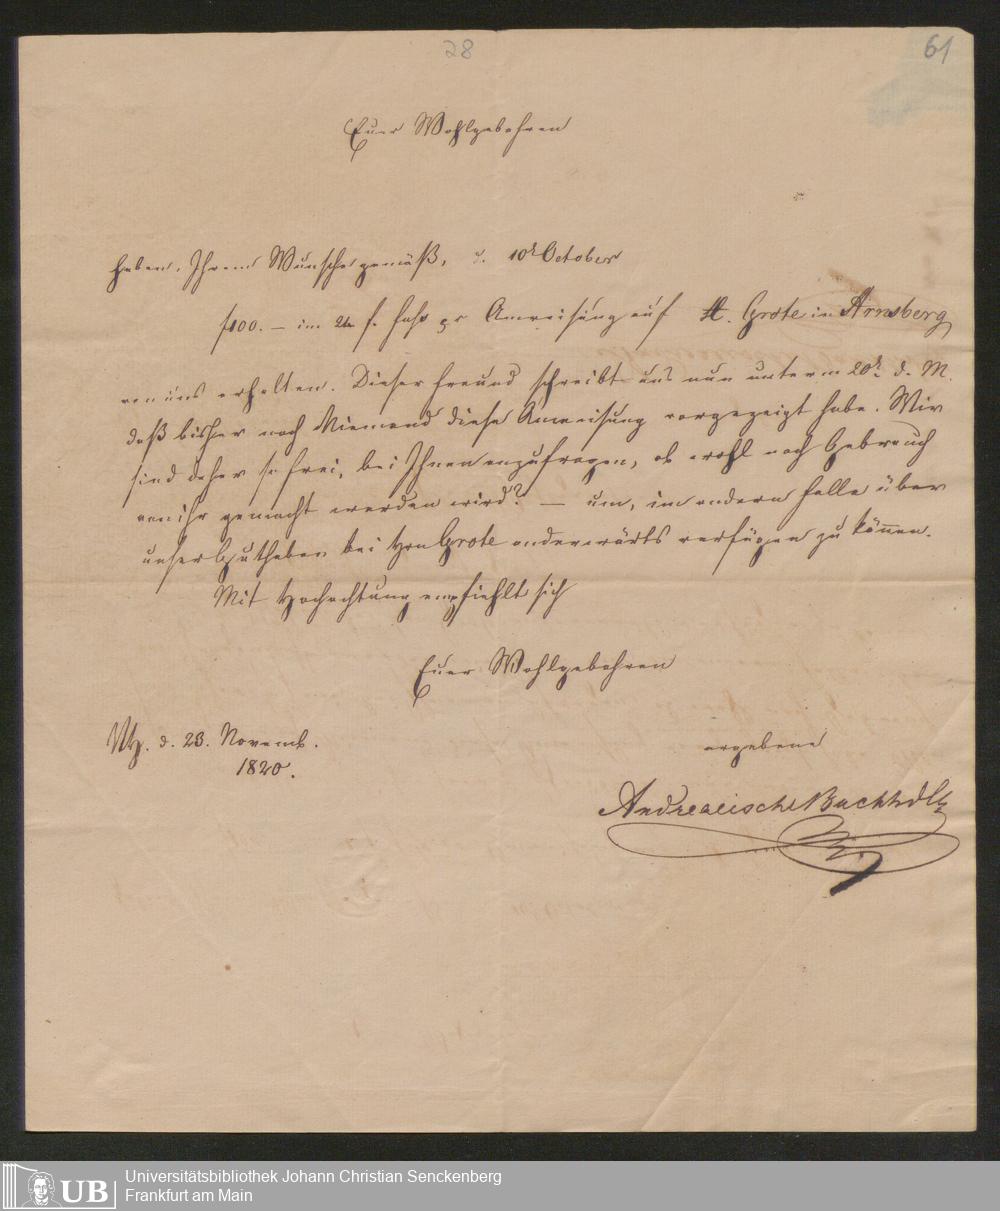 28
61
Euer Wohlgebohren
haben, Ihrem Wunsche gemäß, d. 10t October
f 100. – im 24 f. Fuße pr Anweisung auf A. Grote in Arnsberg
von uns erhalten. Dieser Freund schreibt uns nun unterm 20t. d. M.
daß bisher noch Niemand diese Anweisung vorgezeigt habe. Wir
sind daher so frei, bei Ihnen anzufragen, ob wohl noch Gebrauch
von ihr gemacht werden wird? – um, im andern Falle über
unser Guthaben bei Hrn Grote anderwärts verfügen zu können.
Mit Hochachtung empfiehlt sich
Euer Wohlgebohren
d. 23. Novemb.
1820.
ergebene
Andreaeische Buchhdlg
UB
Universitätsbibliothek Johann Christian Senckenberg
Frankfurt am Main